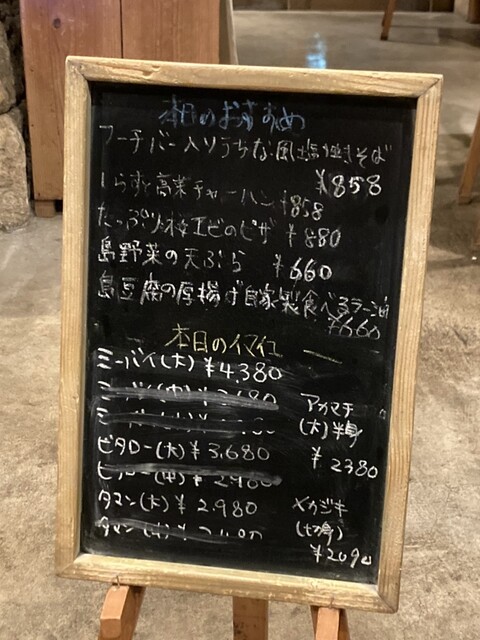 本日のおすすめ
フーチバー入りうちな風塩焼きそば
¥858
しらすと高菜チャーハン ¥858
たっぷり桜エビのピザ ¥880
島野菜の天ぷら ¥660
島豆腐の厚揚げ自家製食べるラー油
¥660
本日のイマイユ
ミーバイ(大) ¥4,380
ビタロー(大) ¥3,680
タマン(大) ¥2980
アカマチ
(大)半身
¥2380
メカジキ
(切身)
¥2090